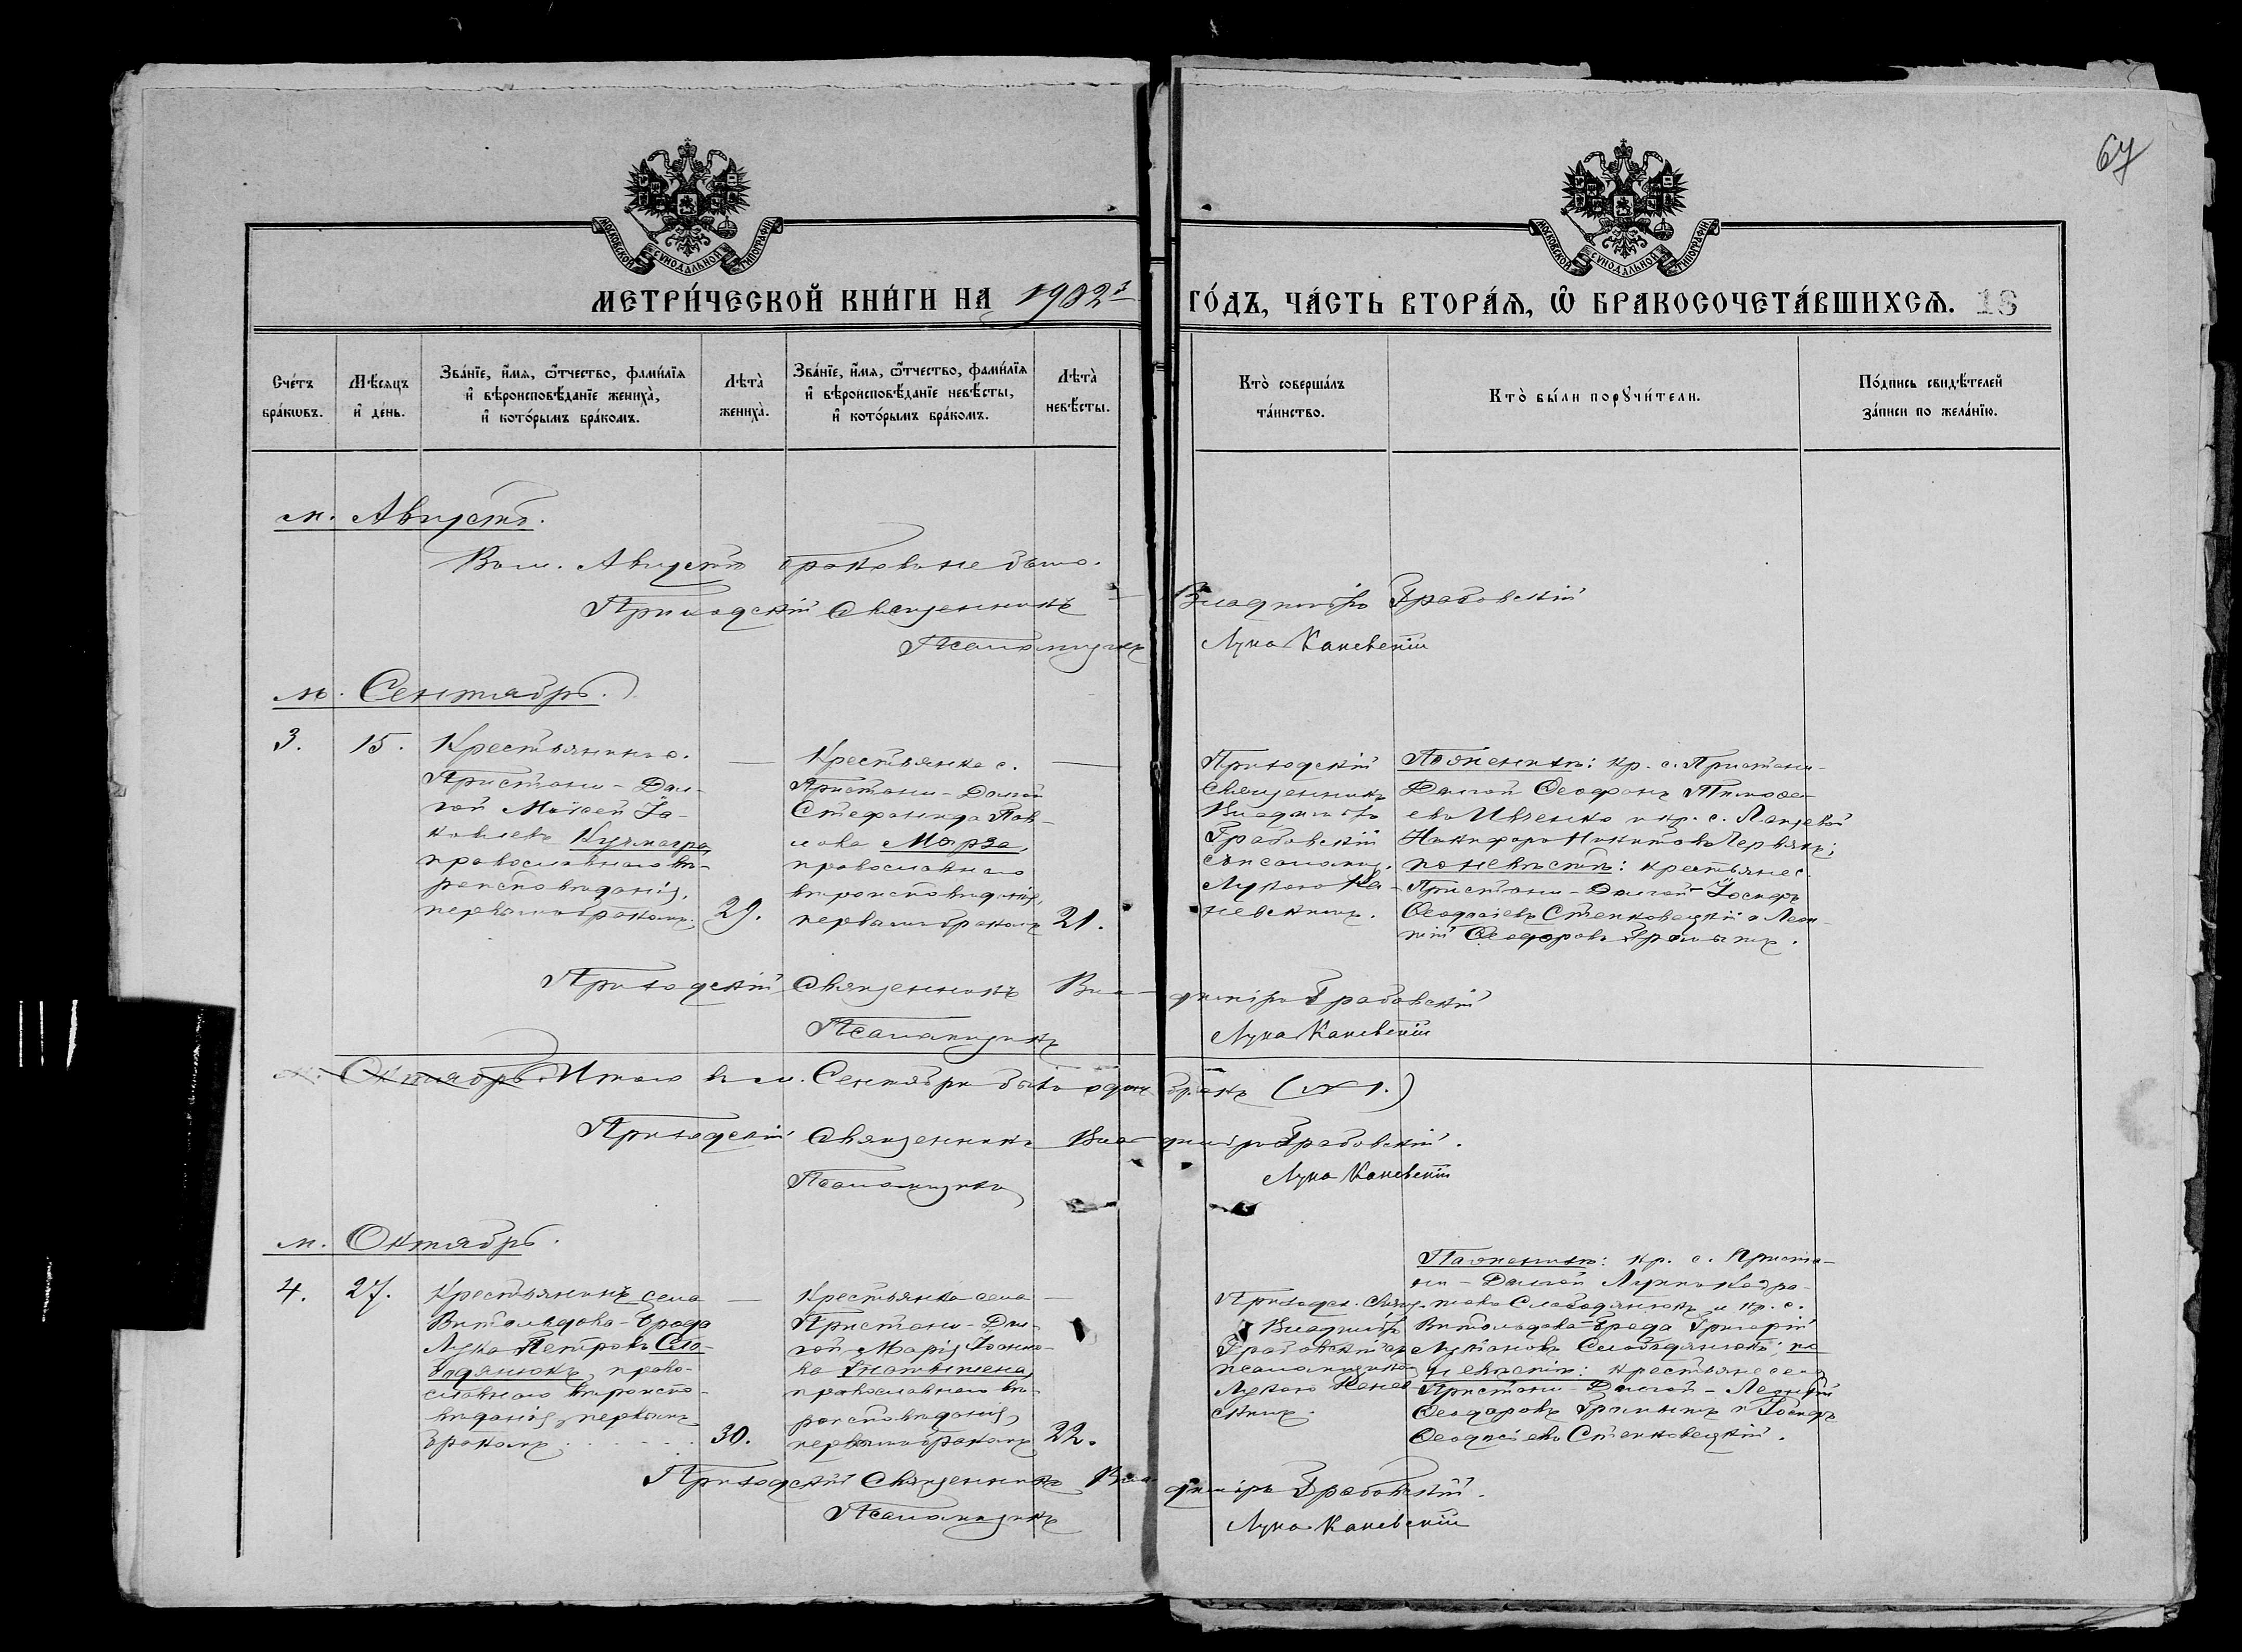 67
МОСКОВСКОЙ СУНОДАЛЬНОЙ ТИПОГРАФІИ
МОСКОВСКОЙ СУНОДАЛЬНОЙ ТИПОГРАФІИ
МЕТРИ́ЧЕСКОЙ КНИ́ГИ НА 1902й ГО́ДЪ, ЧА́СТЬ ВТОРА́Ѧ, Ѽ БРАКОСОЧЕТА́ВШИХСѦ. 18
Сче́тъ бра́кѡвъ.
Мѣ́сяцъ и҆ де́нь.
Зва́нїе, и҆́мѧ, ѻ҆́тчество, фами́лїѧ и҆ вѣроисповѣ́данїе жениха̀, и҆ кото́рымъ бра́комъ.
Лѣта̀ жениха̀.
Зва́нїе, и҆́мѧ, ѻ҆́тчество, фами́лїѧ и҆ вѣроисповѣ́данїе невѣ́сты, и҆ кото́рымъ бра́комъ.
Лѣта̀ невѣ́сты.
Кто̀ соверша́лъ та́инство.
Кто̀ бы́ли порꙋчи́тели.
По́дпись свидѣ́телей за́писи по жела́нїю.
м. Августъ.
Въ м. Августѣ браковъ не было.
Приходскій Священникъ Владиміръ Грабовскій
Псаломщикъ Лука Каневскій
м. Сентябрь.
3. 15.
Крестьянинъ с.
Пристани-Дол-
гой Моѵсей Іа-
ковлевъ
православнаго вѣ-
роисповѣданія,
первымъ бракомъ. 29.
Крестьянка с.
Пристани-Долгой
Стефанида Пав-
лова Мырза,
православнаго
вѣроисповѣданія,
первымъ бракомъ 21.
Приходскій
Священникъ
Владиміръ
Грабовскій
съ псаломщ.
Лукою Ка-
невскимъ.
По женихѣ: кр. с. Пристани-
Долгой Ѳеофанъ Тимоѳе-
евъ Ивченко и кр. с.
Никифоръ Никитовъ Червякъ;
по невѣстѣ: крестьяне с.
Пристани-Долгой Іосифъ
Ѳеодосіевъ Стенковецкій и Леон-
тій Ѳеодоровъ
Приходскій Священникъ Владиміръ Грабовскій
Псаломщикъ Лука Каневскій
м. Октябрь. Итого въ м. Сентябрѣ былъ одинъ бракъ (№ 1.)
Приходскій Священникъ Владиміръ Грабовскій.
Псаломщикъ Лука Каневскій
м. Октябрь.
4. 27.
Крестьянинъ села
Витольдова-Брода
Лука Петровъ Сло-
бодянюкъ, право-
славнаго вѣроиспо-
вѣданія, первымъ
бракомъ 30.
Крестьянка села
Пристани-Дол-
гой Марія Іоанно-
ва Гнатышена,
православнаго вѣ-
роисповѣданія,
первымъ бракомъ 22.
Приходск. Свящ.
Владиміръ
Грабовскій съ
псаломщикомъ
Лукою Канев-
скимъ.
По женихѣ: кр. с. Приста-
ни-Долгой
Слободянюкъ и кр. с.
Витольдова-Брода Григорій
Лукіановъ Слободянюкъ; по
невѣстѣ: крестьяне села
Пристани-Долгой-Леонтій
Ѳеодоровъ и Іосифъ
Ѳеодосіевъ Стенковецкій.
Приходскій Священникъ Владиміръ Грабовскій.
Псаломщикъ Лука Каневскій